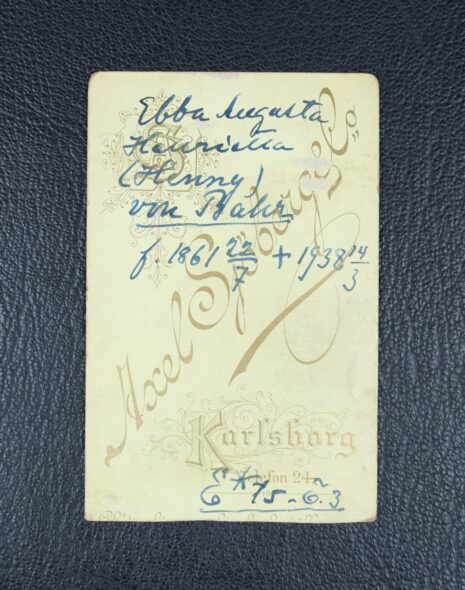 Ebba Augusta
Henrietta
(Henny)
von Bahr
f. 1861 22/7 + 1938 14/3
Axel Sjöberg & Co
Karlsborg
Telefon 24